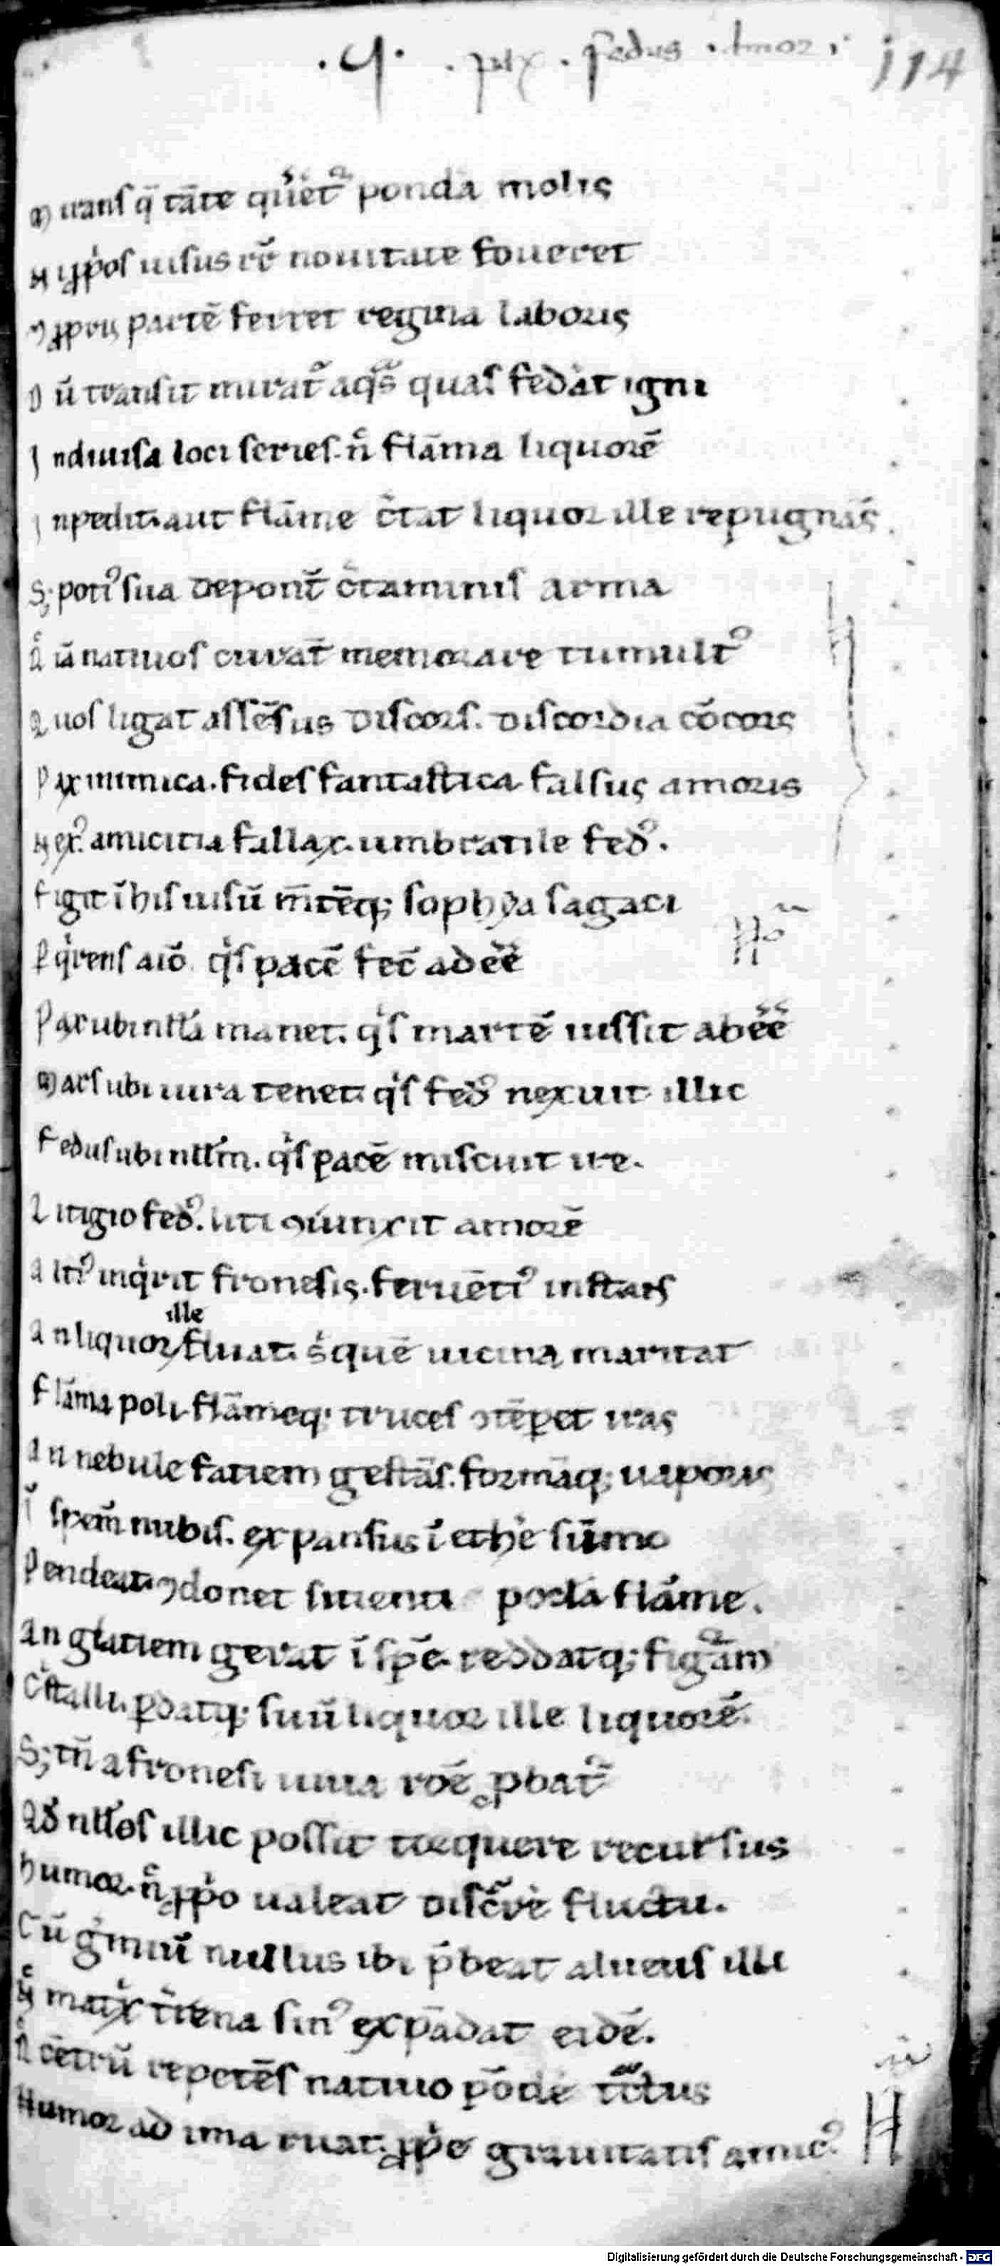 .q. .pax. fedus. Amor. 114
Mirans q̄ tāte quer̄et pondа molis
Ni ꝓpͥos uisus rē nouitate foueret
ꝯꝓpͥij partē ferret regina laboris
Dū transit mirat᷑ aqͣs quas fedͣat igni
Indiuisa loci series. n̄ flāma liquorē
Inpedit. aut flāme c̄tat liquor ille repugnās
Sꝫ poti᷒ sua deponūt c̄taminis arma
N̄ iā natiuos curāt memorare tumult᷒
Quos ligat assēsus discors. discordia cōcors
Pax inimica. fides fantastica falsus amoris
Nex᷒. amicitia fallax. umbratile fed᷒.
Figit ī his uisū m̄tēqꝫ sophya sagaci
Pqͥrens aīo. qͥs pacē fec̄ adeē
Pax ubi nl̄la manet. qͥs martē iussit abeē
Mars ubi iura tenet. qͥs fed᷒ nexuit illic
Fedus ubi nl̄lm. qͥs pacē miscuit ire.
Litigio fed᷒. liti ꝯiunxit amorē
Alti᷒ inqͥrit fronesis. feruēti᷒ instans
An liquor ille fluat. sͥ quē uicina maritat
Flāma poli. flāmeqꝫ truces ꝯtēꝑet iras
An nebule faciem gestās. formāqꝫ uaporis
Ī spem̄ nubis. expansus ī ethe sūmo
Pendeat. ꝯdonet sitienti pocla flāme.
An glaciem gerat ī spē. reddatqꝫ figͣam
Cͥstalli. ꝑdatqꝫ suū liquor ille liquorē.
Sꝫ tn̄ a fronesi uiua roē ꝓbat᷑
Qd̄ nl̄los illic possit torquere recursus
Humor. n̄ ꝓpͥo ualeat discͬrē fluctu.
Cū gͬmiū nullus ibi p̄beat alueus illi
N̄ matͥx t̄rena sin᷒ expādat eidē.
N̄ cētrū repetēs natiuo pōde tͣctus
Humor ad ima ruat. ꝓpͥe grauitatis amic᷒